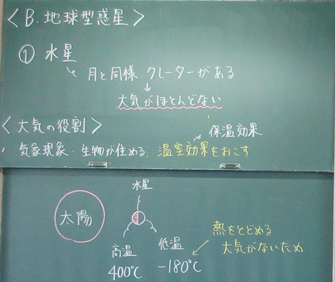 <B. 地球型惑星>
① 水星
月と同様 クレーターがある
大気がほとんどない
<大気の役割>
保温効果
・気象現象・生物が住める. 温室効果をおこす
水星
太陽
高温
低温
400℃
-180℃
熱をとどめる
大気がないため